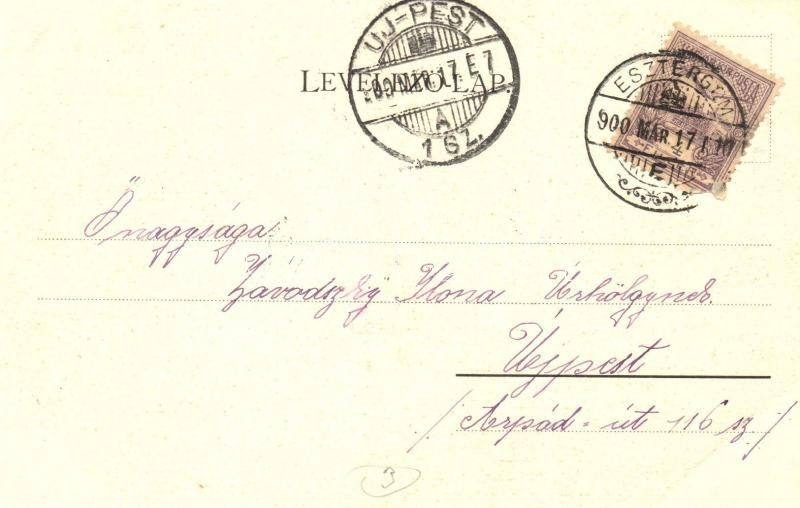 UJ-PEST
900 MAR. 17 E 7
A
1 SZ.
LEVELEZŐ-LAP.
ESZTERGOM
900 MÁR. 17
E
Őnagysága
Závodszky Ilona Úrhölgynek
Újpest
/Árpád-út 116 sz/
3